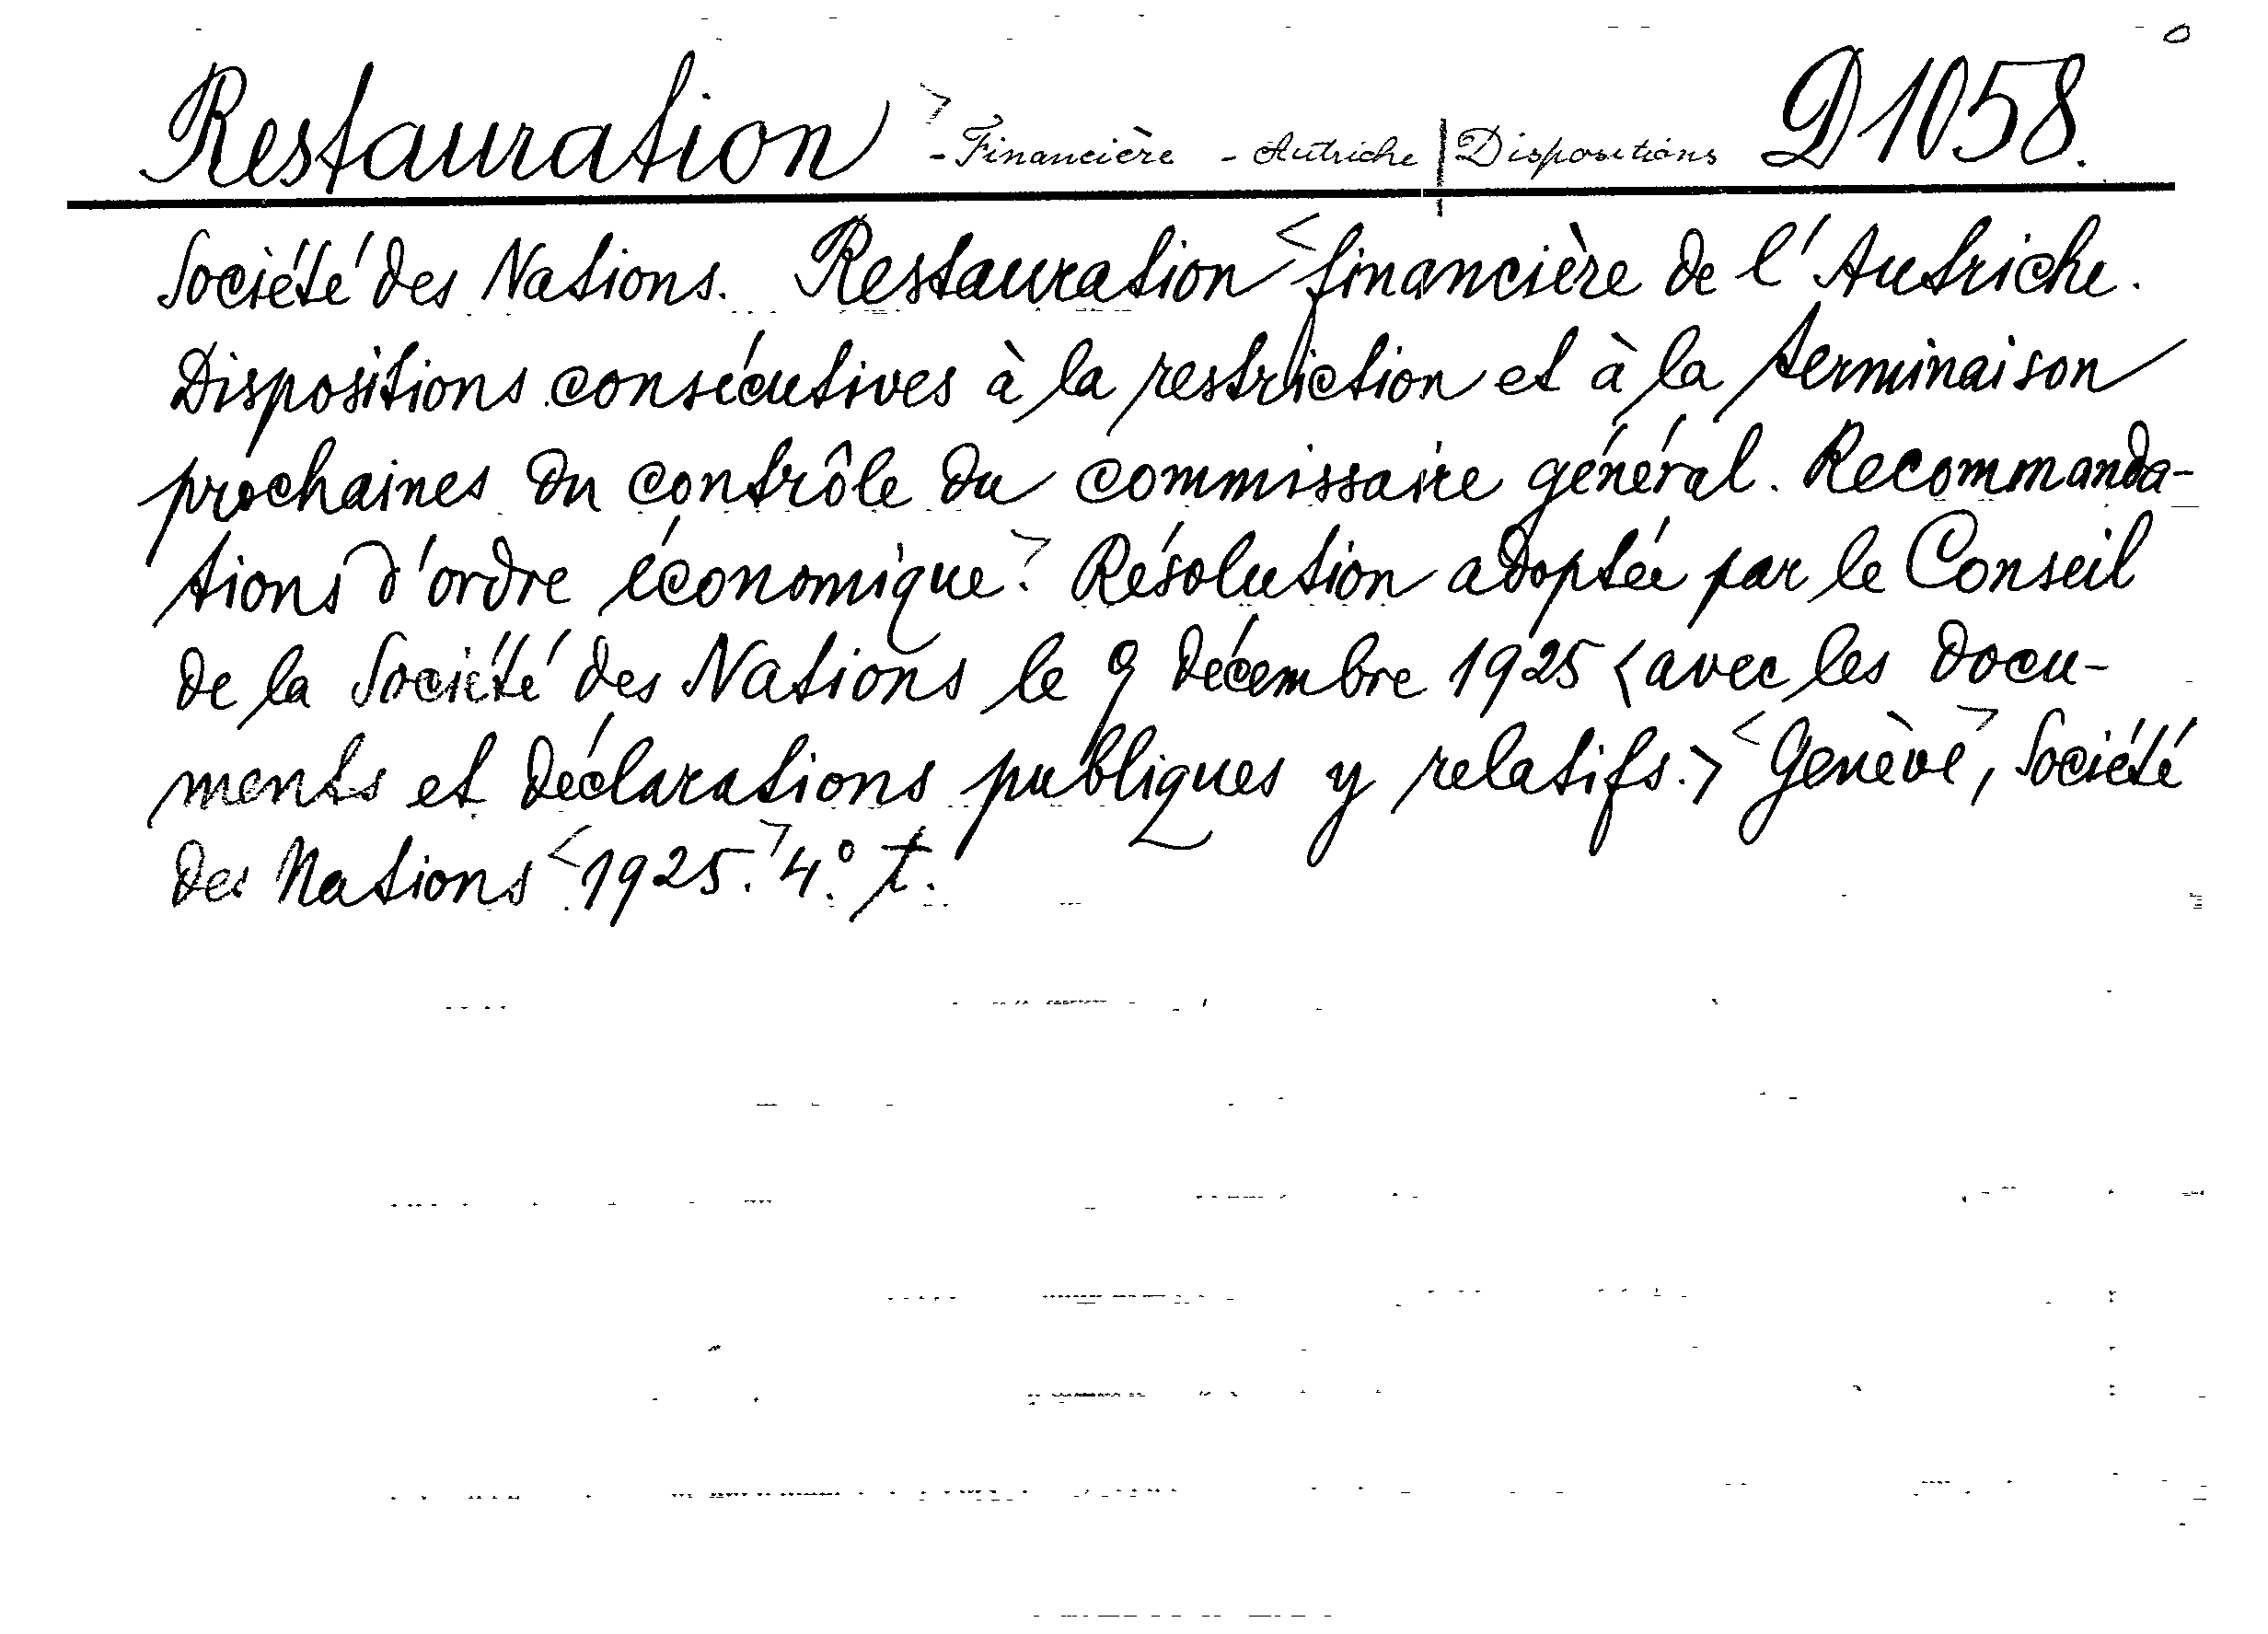 Restauration - Financière - Autriche | Dispositions D1058.
Société des Nations. Restauration <financière de l'Autriche.
Dispositions consécutives à la restriction et à la terminaison
prochaines du contrôle du commissaire général. Recommanda-
tions d'ordre économique.> Résolution adoptée par le Conseil
de la Société des Nations le 9 décembre 1925 <avec les docu-
ments et déclarations publiques y relatifs.> <Genève>, Société
des Nations <1925.> 4.° t.